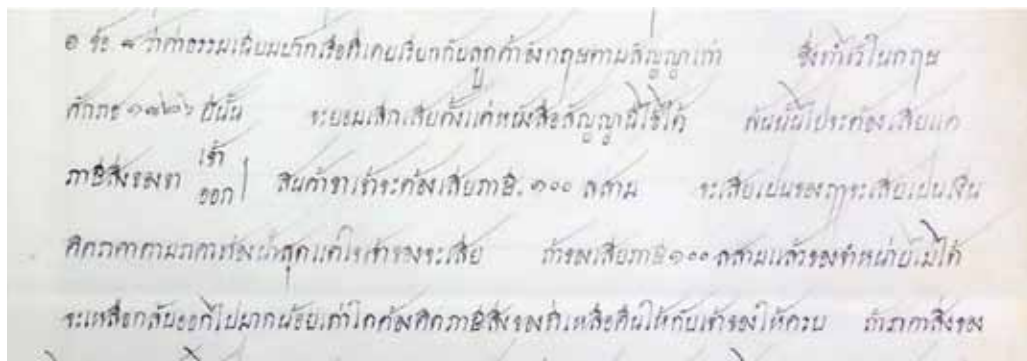 ๏ ข้อ ๘ ว่าค่าธรรมเนียมปากเรือที่เคยเรียกกับลูกค้าอังกฤษตามสัญญาเก่า ซึ่งทำไว้ในกฤษ
ศักภช ๑๘๒๖ ปีนั้น จะยอมเลิกเสียตั้งแต่หนังสือสัญญานี้ใช้ได้ พ้นนั้นไปจะต้องเสียแต่
ภาษีสิ่งของขา เข้า ออก สินค้าขาเข้าจะต้องเสียภาษี ๑๐๐ ละสาม จะเสียเป็นของฤๅจะเสียเป็นเงิน
คิดราคาตามราคาท้องน้ำสุดแต่ใจเจ้าของจะเสีย ถ้าของเสียภาษี ๑๐๐ ละสามแล้วของจำหน่ายไม่ได้
จะเหลือกลับออกไปมากน้อยเท่าใดต้องคิดภาษีสิ่งของที่เหลือคืนให้กับเจ้าของให้ครบ ถ้าราคาสิ่งของ